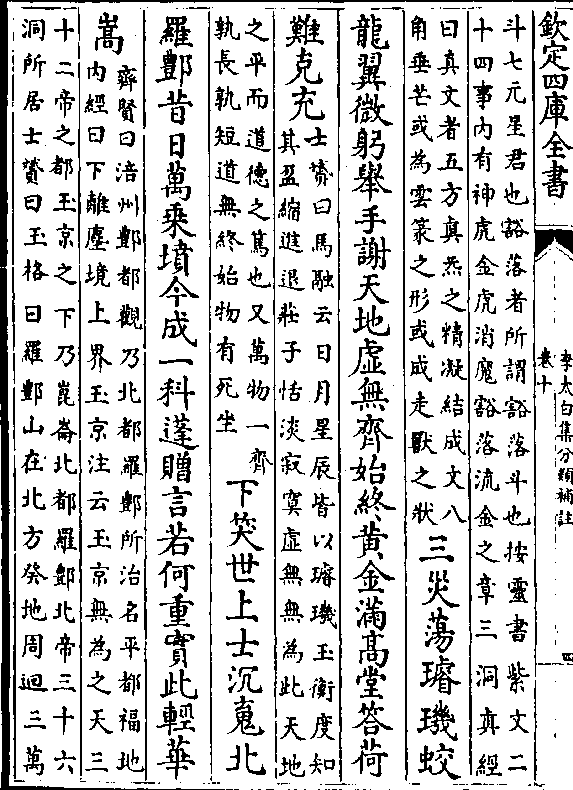 欽定四庫全書
李太白集分類補註
卷十
四
斗七元星君也豁落者所謂豁落斗也按靈書紫文二
十四事內有神虎金虎消魔豁落流金之章三洞真經
曰真文者五方真炁之精凝結成文八
角垂芒或為雲篆之形或成走獸之狀
三災蕩璿璣蛟
龍翼微躬舉手謝天地虛無齊始終黃金滿高堂荅荷
難克充
士贇曰馬融云日月星辰皆以璿璣玉衡度知
其盈縮進退莊子恬淡寂寞虛無無為此天地
之平而道德之篤也又萬物一齊
孰長孰短道無終始物有死坐
下笑世上士沉䰟北
羅酆昔日萬乘墳今成一科蓬贈言若何重實此輕華
嵩
齊賢曰涪州酆都觀乃北都羅酆所治名平都福地
內經曰下離塵境上界玉京注云玉京無為之天三
十二帝之都玉京之下乃崑崙北都羅酆北帝三十六
洞所居士贇曰玉格曰羅酆山在北方癸地周迴三萬